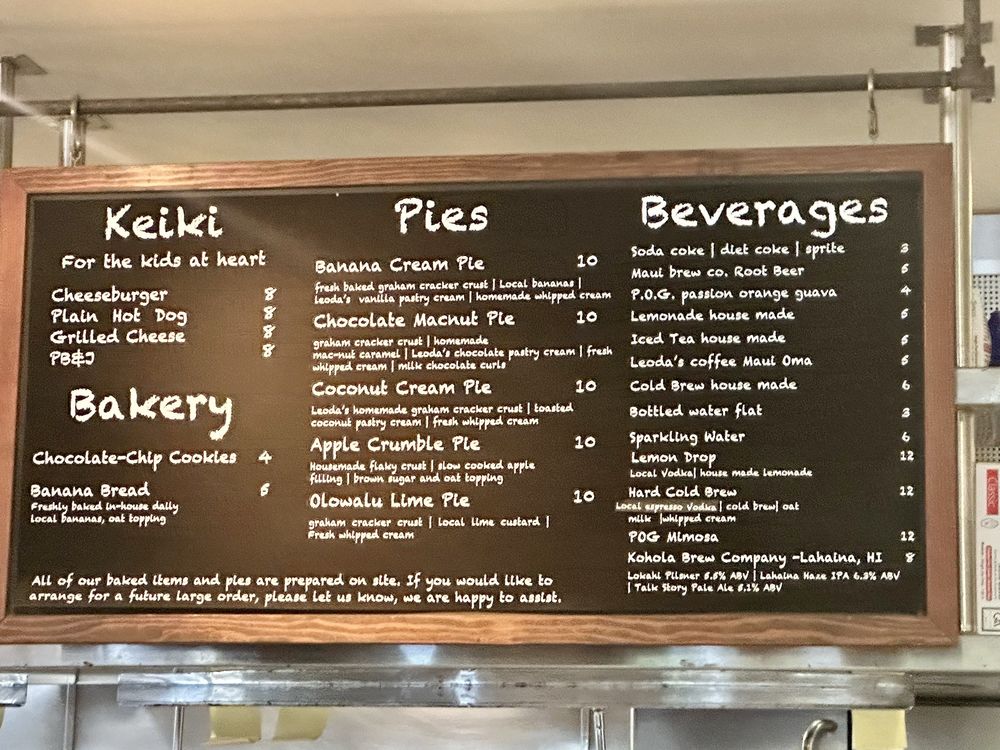 Keiki
For the kids at heart
Cheeseburger 8
Plain Hot Dog 8
Grilled Cheese 8
PB&J 8
Bakery
Chocolate-Chip Cookies 4
Banana Bread 5
Freshly baked in-house daily
local bananas, oat topping
Pies
Banana Cream Pie 10
fresh baked graham cracker crust | Local bananas |
leoda's vanilla pastry cream | homemade whipped cream
Chocolate Macnut Pie 10
graham cracker crust | homemade
mac-nut caramel | Leoda's chocolate pastry cream | fresh
whipped cream | milk chocolate curls
Coconut Cream Pie 10
Leoda's homemade graham cracker crust | toasted
coconut pastry cream | fresh whipped cream
Apple Crumble Pie 10
Housemade flaky crust | slow cooked apple
filling | brown sugar and oat topping
Olowalu Lime Pie 10
graham cracker crust | local lime custard |
Fresh whipped cream
All of our baked items and pies are prepared on site. If you would like to
arrange for a future large order, please let us know, we are happy to assist.
Beverages
Soda coke | diet coke | sprite 3
Maui brew co. Root Beer 5
P.O.G. passion orange guava 4
Lemonade house made 5
Iced Tea house made 5
Leoda's coffee Maui Oma 5
Cold Brew house made 6
Bottled water flat 3
Sparkling Water 6
Lemon Drop 12
Local Vodka| house made lemonade
Hard Cold Brew 12
Local espresso Vodka | cold brew| oat
milk |whipped cream
POG Mimosa 12
Kohola Brew Company -Lahaina, HI 8
Lokahi Pilsner 5.5% ABV | Lahaina Haze IPA 6.3% ABV
| Talk Story Pale Ale 5.1% ABV
Classic